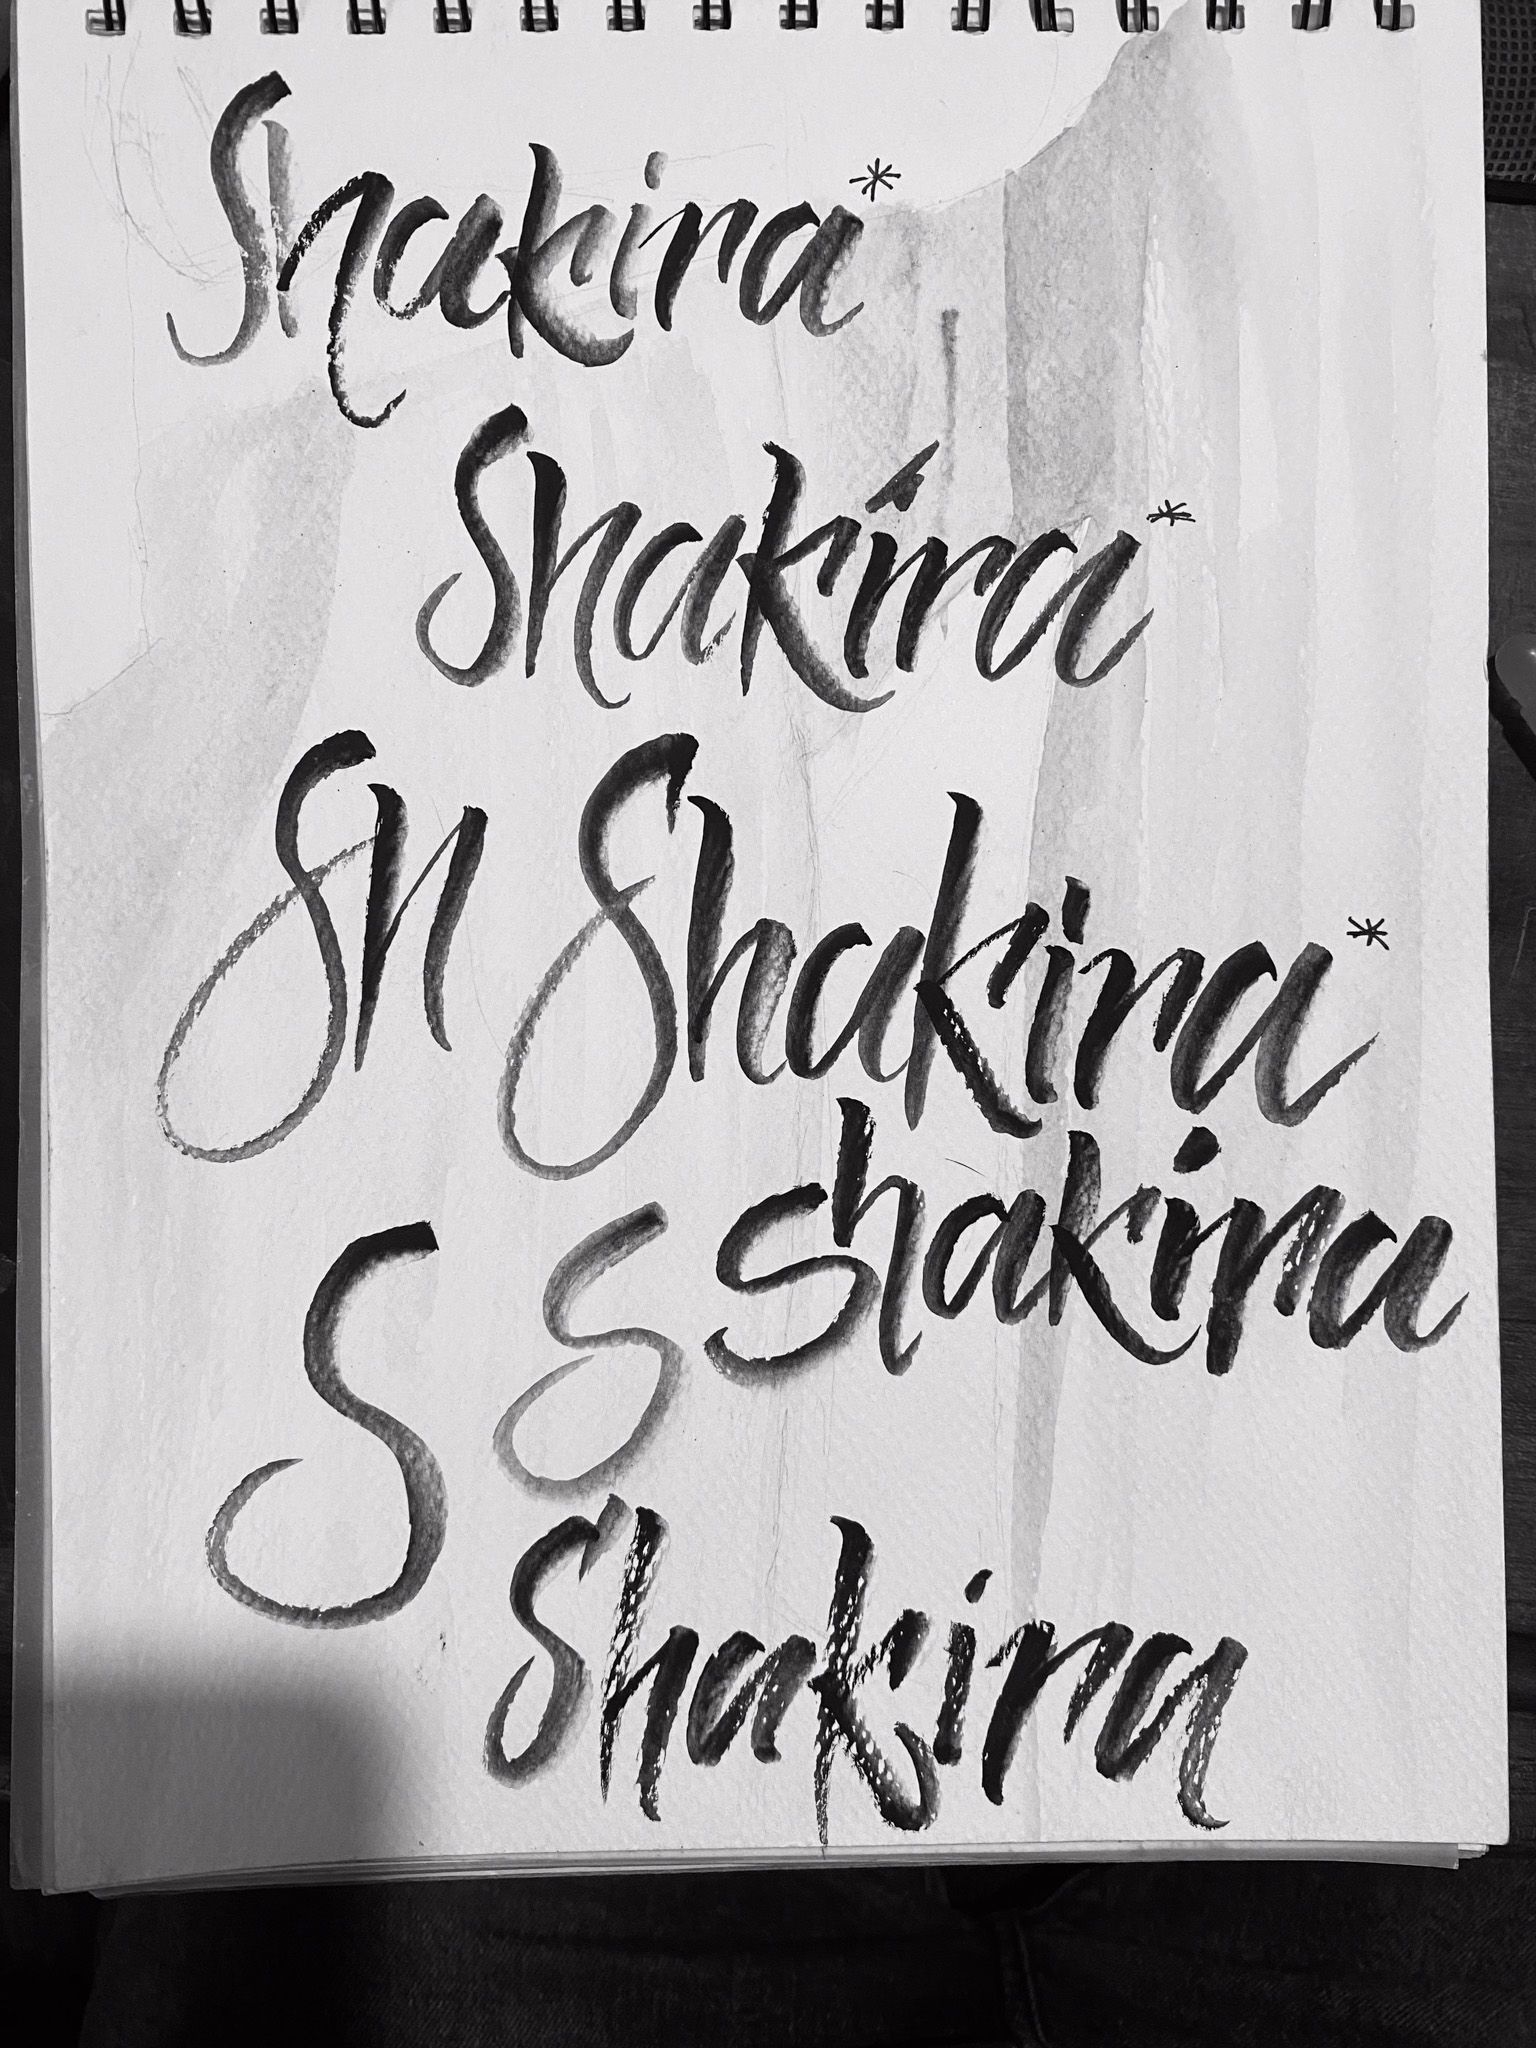 Shakira*
Shakira*
Sh Shakira*
S S shakira
Shakira